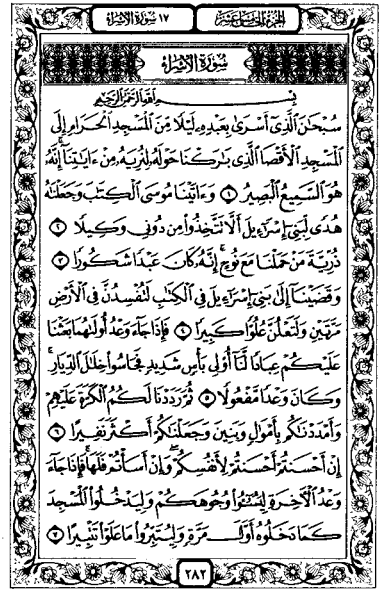 الجزء الخامس عشر
١٧ سورة الإسراء
سورة الإسراء
بسم الله الرحمن الرحيم
سُبْحَانَ الَّذِي أَسْرَىٰ بِعَبْدِهِ لَيْلًا مِّنَ الْمَسْجِدِ الْحَرَامِ إِلَى
الْمَسْجِدِ الْأَقْصَا الَّذِي بَارَكْنَا حَوْلَهُ لِنُرِيَهُ مِنْ ءَايَاتِنَا إِنَّهُ
هُوَ السَّمِيعُ الْبَصِيرُ ١ وَءَاتَيْنَا مُوسَى الْكِتَابَ وَجَعَلْنَاهُ
هُدًى لِّبَنِي إِسْرَاءِيلَ أَلَّا تَتَّخِذُوا مِن دُونِي وَكِيلًا ٢
ذُرِّيَّةَ مَنْ حَمَلْنَا مَعَ نُوحٍ إِنَّهُ كَانَ عَبْدًا شَكُورًا ٣
وَقَضَيْنَا إِلَىٰ بَنِي إِسْرَاءِيلَ فِي الْكِتَابِ لَتُفْسِدُنَّ فِي الْأَرْضِ
مَرَّتَيْنِ وَلَتَعْلُنَّ عُلُوًّا كَبِيرًا ٤ فَإِذَا جَاءَ وَعْدُ أُولَاهُمَا بَعَثْنَا
عَلَيْكُمْ عِبَادًا لَّنَا أُولِي بَأْسٍ شَدِيدٍ فَجَاسُوا خِلَالَ الدِّيَارِ
وَكَانَ وَعْدًا مَّفْعُولًا ٥ ثُمَّ رَدَدْنَا لَكُمُ الْكَرَّةَ عَلَيْهِمْ
وَأَمْدَدْنَاكُم بِأَمْوَالٍ وَبَنِينَ وَجَعَلْنَاكُمْ أَكْثَرَ نَفِيرًا ٦
إِنْ أَحْسَنتُمْ أَحْسَنتُمْ لِأَنفُسِكُمْ وَإِنْ أَسَأْتُمْ فَلَهَا فَإِذَا جَاءَ
وَعْدُ الْآخِرَةِ لِيَسُوءُوا وُجُوهَكُمْ وَلِيَدْخُلُوا الْمَسْجِدَ
كَمَا دَخَلُوهُ أَوَّلَ مَرَّةٍ وَلِيُتَبِّرُوا مَا عَلَوْا تَتْبِيرًا ٧
٢٨٢